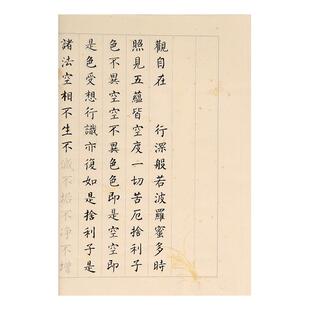 觀自在　　行深般若波羅蜜多時
照見五蘊皆空度一切苦厄捨利子
色不異空空不異色色即是空空即
是色受想行識亦復如是捨利子是
諸法空相不生不滅不垢不淨不增